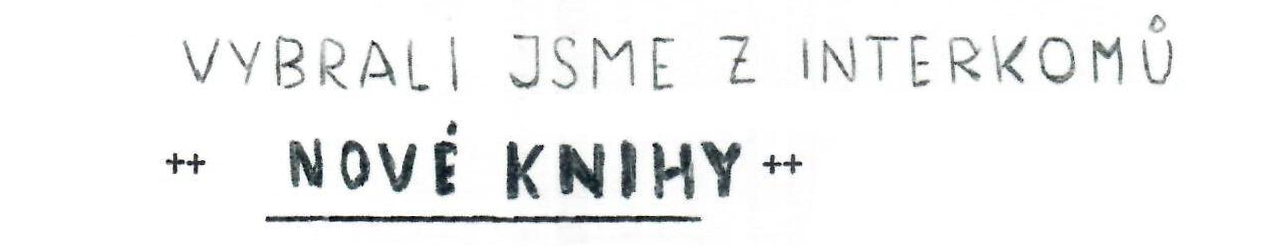 VYBRALI JSME Z INTERKOMŮ
++ NOVÉ KNIHY ++